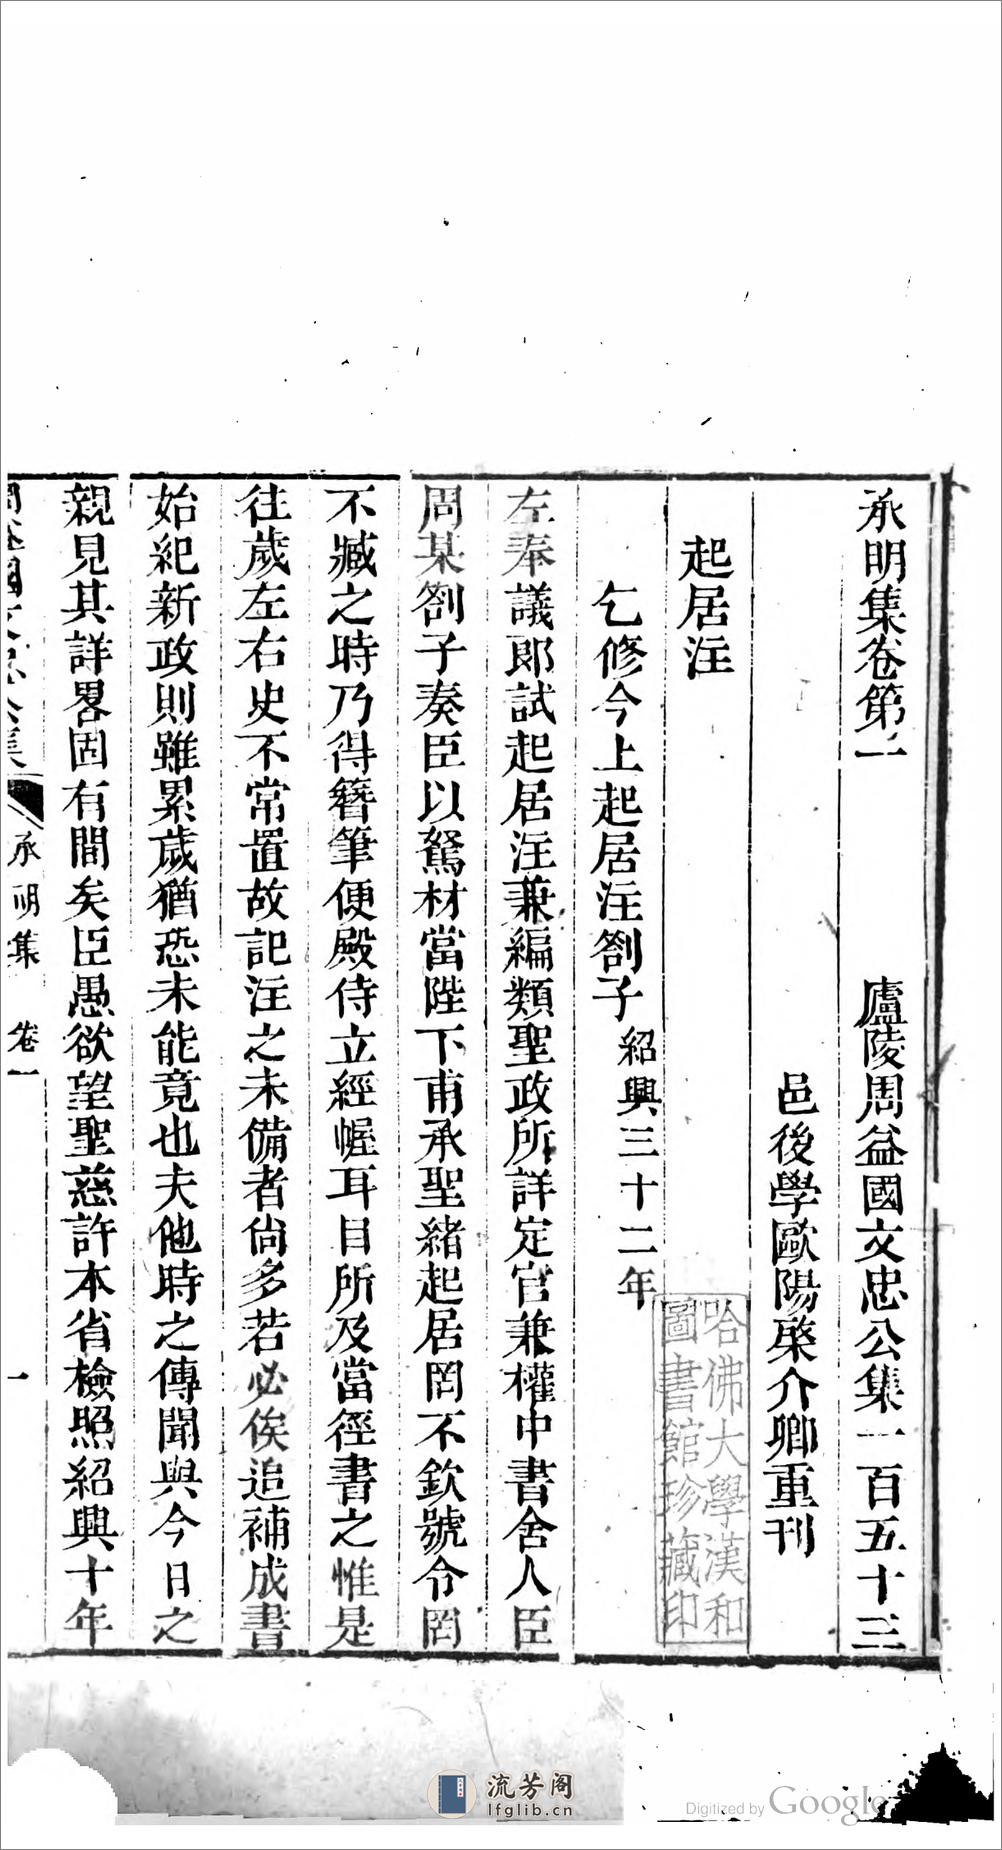 承明集卷第一　廬陵周益國文忠公集一百五十三
邑後學歐陽棨介卿重刊
起居注
乞修今上起居注劄子 紹興三十二年
左奉議郎試起居注兼編類聖政所詳定官兼權中書舍人臣
周某劄子奏臣以駑材當陛下甫承聖緒起居罔不欽號令罔
不臧之時乃得簪筆便殿侍立經幄耳目所及當徑書之惟是
往歲左右史不常置故記注之未備者尚多若必俟追補成書
始紀新政則雖累歲猶恐未能竟也夫他時之傳聞與今日之
親見其詳畧固有間矣臣愚欲望聖慈許本省檢照紹興十年
周益國文忠公集 承明集 卷一 一
哈佛大學漢和
圖書館珍藏印
流芳阁
lfglib.cn
Digitized by Google